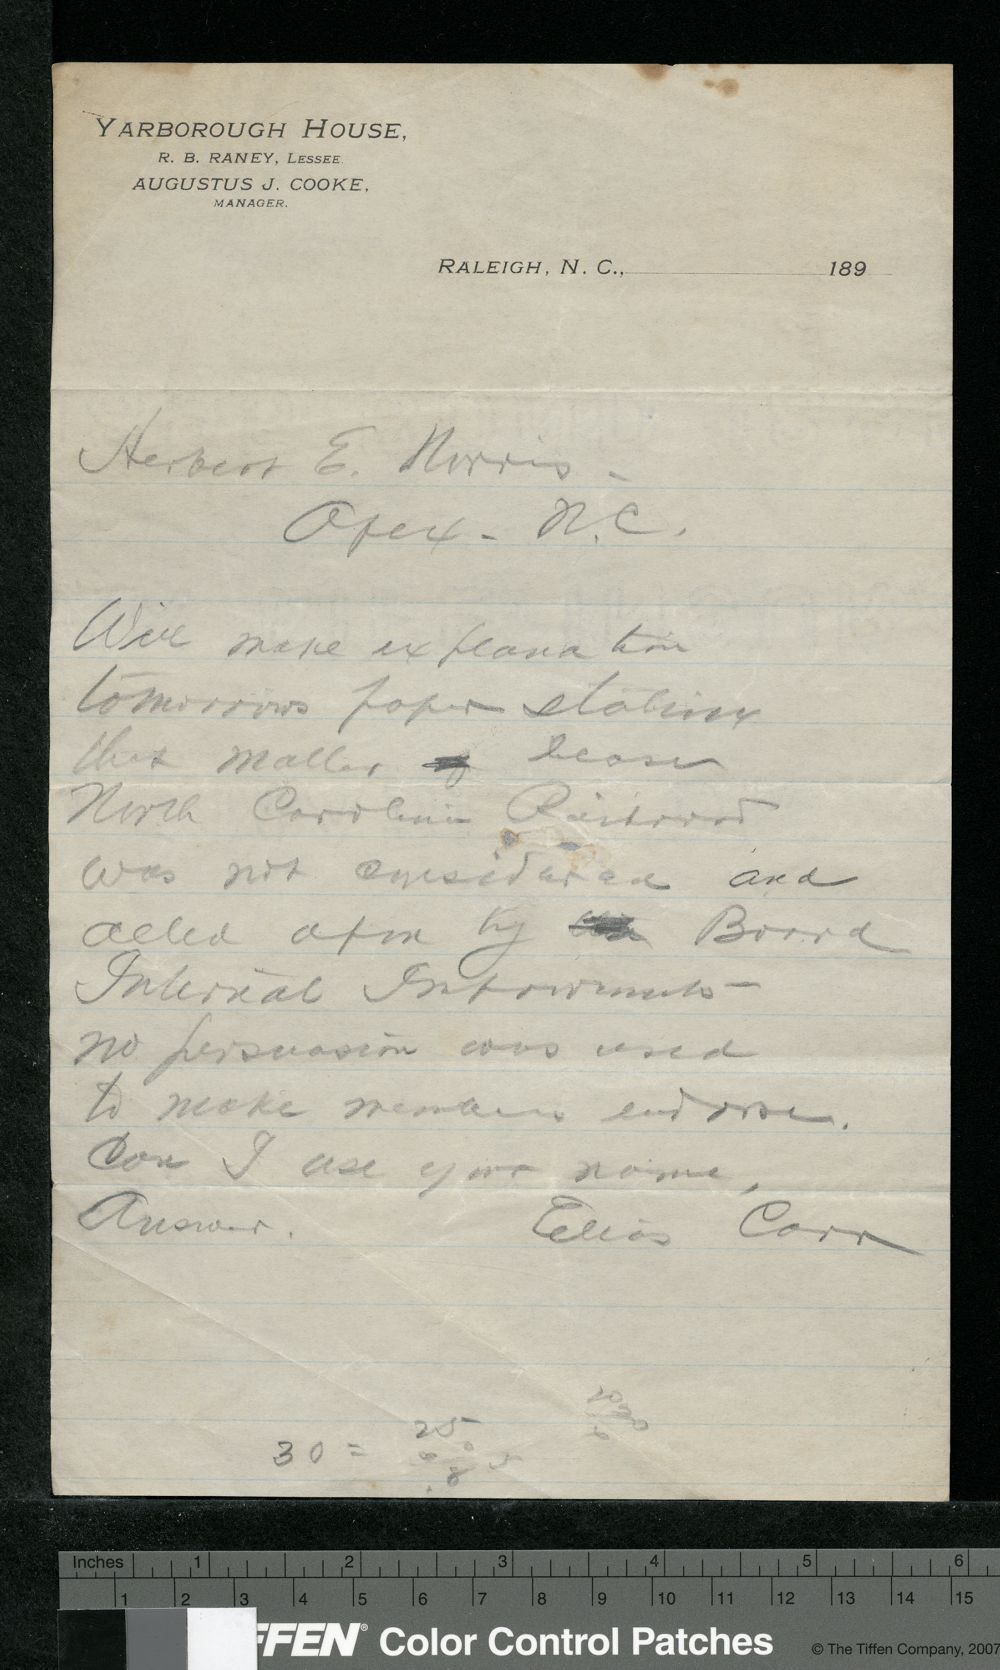 YARBOROUGH HOUSE,
R. B. RANEY, LESSEE
AUGUSTUS J. COOKE,
MANAGER.
RALEIGH, N. C., 189
Herbert E. Norris -
Apex - N.C.
Will make explanation
tomorrows paper stating
that matter lease
North Carolina Railroad
was not considered and
acted upon by Board
Internal Improvements -
no persuasion was used
to make members endorse.
Can I use your name.
Answer. Elias Carr
30 = 25
Inches 1 2 3 4 5 6
1 2 3 4 5 6 7 8 9 10 11 12 13 14 15
FFEN® Color Control Patches © The Tiffen Company, 2007